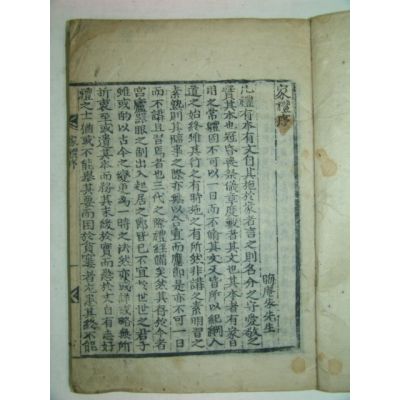 家禮序
晦庵朱先生
凡禮有本有文自其施於家者言之則名分之守愛敬之
實其本也冠昏喪祭儀章度數者其文也其本者有家日
用之常體固不可以一日而不修其文又皆所以紀綱人
道之始終雖其行之有時施之有所然非講之素明習之
素熟則其臨事之際亦無以合宜而應節是亦不可一日
而不講且習焉者也三代之際禮經備矣然其存於今者
宮廬器服之制出入起居之節皆已不宜於世世之君子
雖或酌以古今之變更爲一時之法然亦或詳或略無所
折衷至或遺其本而務其末緩於實而急於文自有志好
禮之士猶或不能擧其要而困於貧窶者尤患其終不能
家禮序